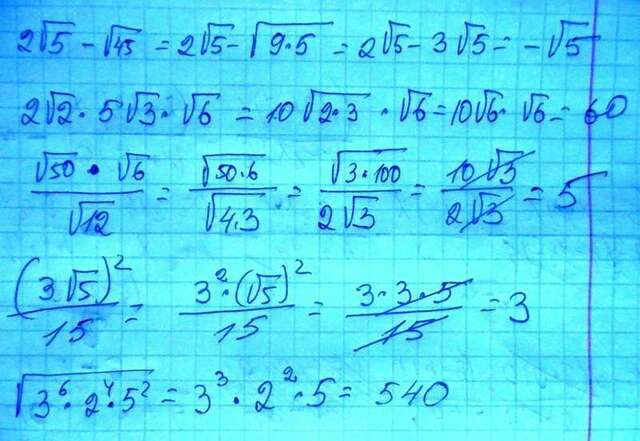 2√5 - √45 = 2√5 - √(9·5) = 2√5 - 3√5 = -√5
2√2 · 5√3 · √6 = 10√(2·3) · √6 = 10√6 · √6 = 60
(√50 · √6)/√12 = √(50·6)/√(4·3) = √(3·100)/(2√3) = (10√3)/(2√3) = 5
(3·√5)²/15 = (3²·(√5)²)/15 = (3·3·5)/15 = 3
√(3⁶·2⁴·5²) = 3³·2²·5 = 540